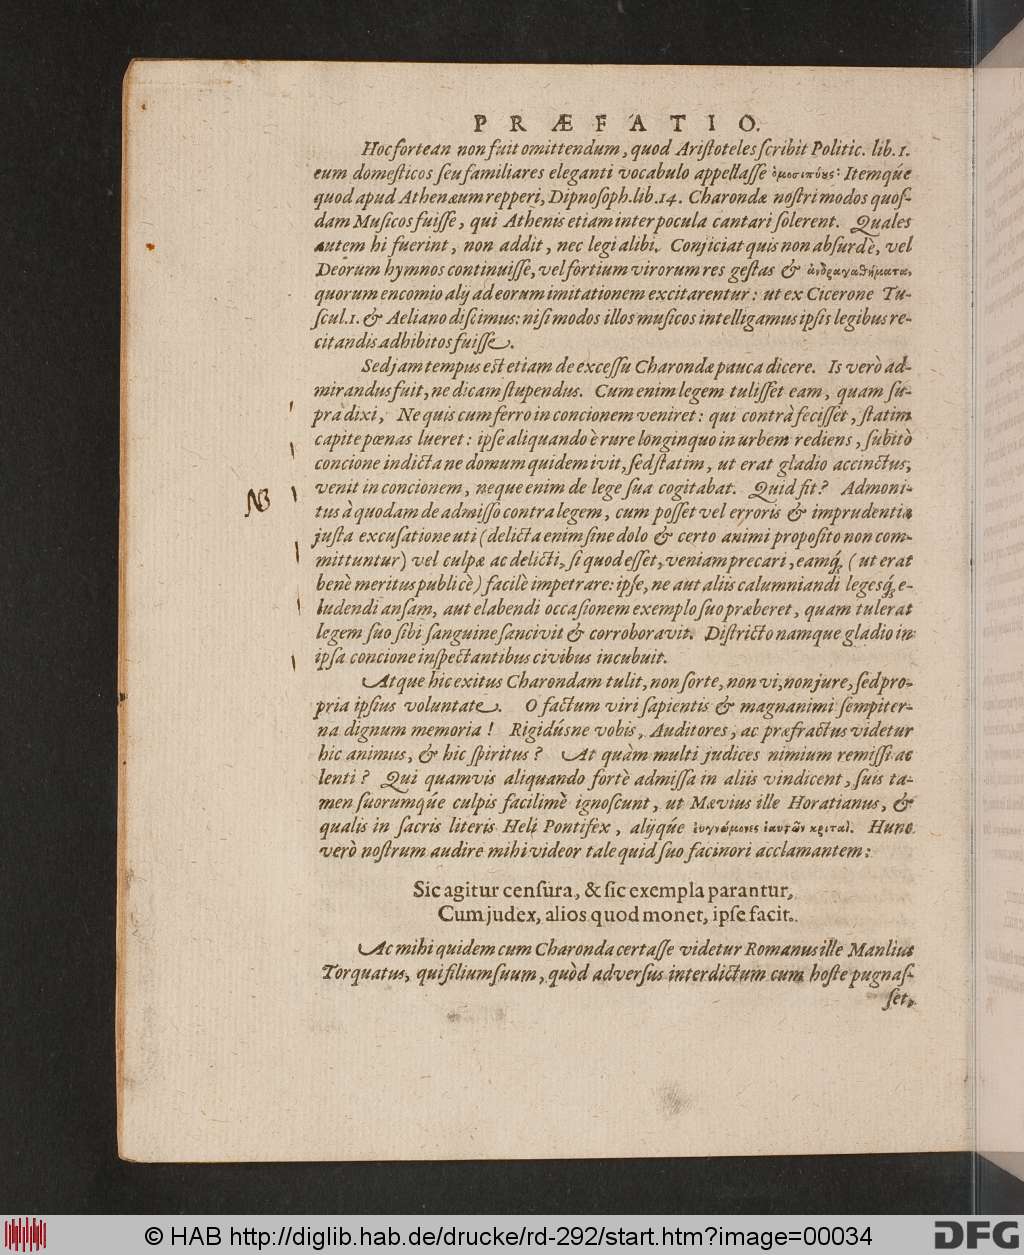 PRÆFATIO.
Hoc fortean non fuit omittendum, quod Aristoteles scribit Politic. lib. 1.
eum domesticos seu familiares eleganti vocabulo appellasse ὁμοσιπύους: Itemqúe
quod apud Athenæum repperi, Dipnosoph. lib. 14. Charondæ nostri modos quos-
dam Musicos fuisse, qui Athenis etiam inter pocula cantari solerent. Quales
autem hi fuerint, non addit, nec legi alibi. Conjiciat quis non absurdè, vel
Deorum hymnos continuisse, vel fortium virorum res gestas & ἀνδραγαθήματα,
quorum encomio alij ad eorum imitationem excitarentur: ut ex Cicerone Tu-
scul. 1. & Aeliano discimus: nisi modos illos musicos intelligamus ipsis legibus re-
citandis adhibitos fuisse.
Sed jam tempus est etiam de excessu Charondæ pauca dicere. Is verò ad-
mirandus fuit, ne dicam stupendus. Cum enim legem tulisset eam, quam su-
pra dixi, Ne quis cum ferro in concionem veniret: qui contrà fecisset, statim
capite pœnas lueret: ipse aliquando è rure longinquo in urbem rediens, subitò
concione indicta ne domum quidem ivit, sed statim, ut erat gladio accinctus,
venit in concionem, neque enim de lege sua cogitabat. Quid fit? Admoni-
NB
tus à quodam de admisso contra legem, cum posset vel erroris & imprudentiæ
justa excusatione uti (delicta enim sine dolo & certo animi proposito non com-
mittuntur) vel culpæ ac delicti, si quod esset, veniam precari, eamq́; (ut erat
benè meritus publicè) facilè impetrare: ipse, ne aut aliis calumniandi legesq́; e-
ludendi ansam, aut elabendi occasionem exemplo suo præberet, quam tulerat
legem suo sibi sanguine sancivit & corroboravit. Districto namque gladio in
ipsa concione inspectantibus civibus incubuit.
Atque hic exitus Charondam tulit, non sorte, non vi, non jure, sed pro-
pria ipsius voluntate. O factum viri sapientis & magnanimi sempiter-
na dignum memoria! Rigidúsne vobis, Auditores, ac præfractus videtur
hic animus, & hic spiritus? At quàm multi judices nimium remissi ac
lenti? Qui quamvis aliquando fortè admissa in aliis vindicent, suis ta-
men suorumqúe culpis facilimè ignoscunt, ut Mævius ille Horatianus, &
qualis in sacris literis Heli Pontifex, alijqúe εὐγνώμονες ἑαυτῶν κριταί. Hunc
verò nostrum audire mihi videor tale quid suo facinori acclamantem:
Sic agitur censura, & sic exempla parantur,
Cum judex, alios quod monet, ipse facit.
Ac mihi quidem cum Charonda certasse videtur Romanus ille Manlius
Torquatus, qui filium suum, quòd adversus interdictum cum hoste pugnas-
set,
© HAB http://diglib.hab.de/drucke/rd-292/start.htm?image=00034
DFG